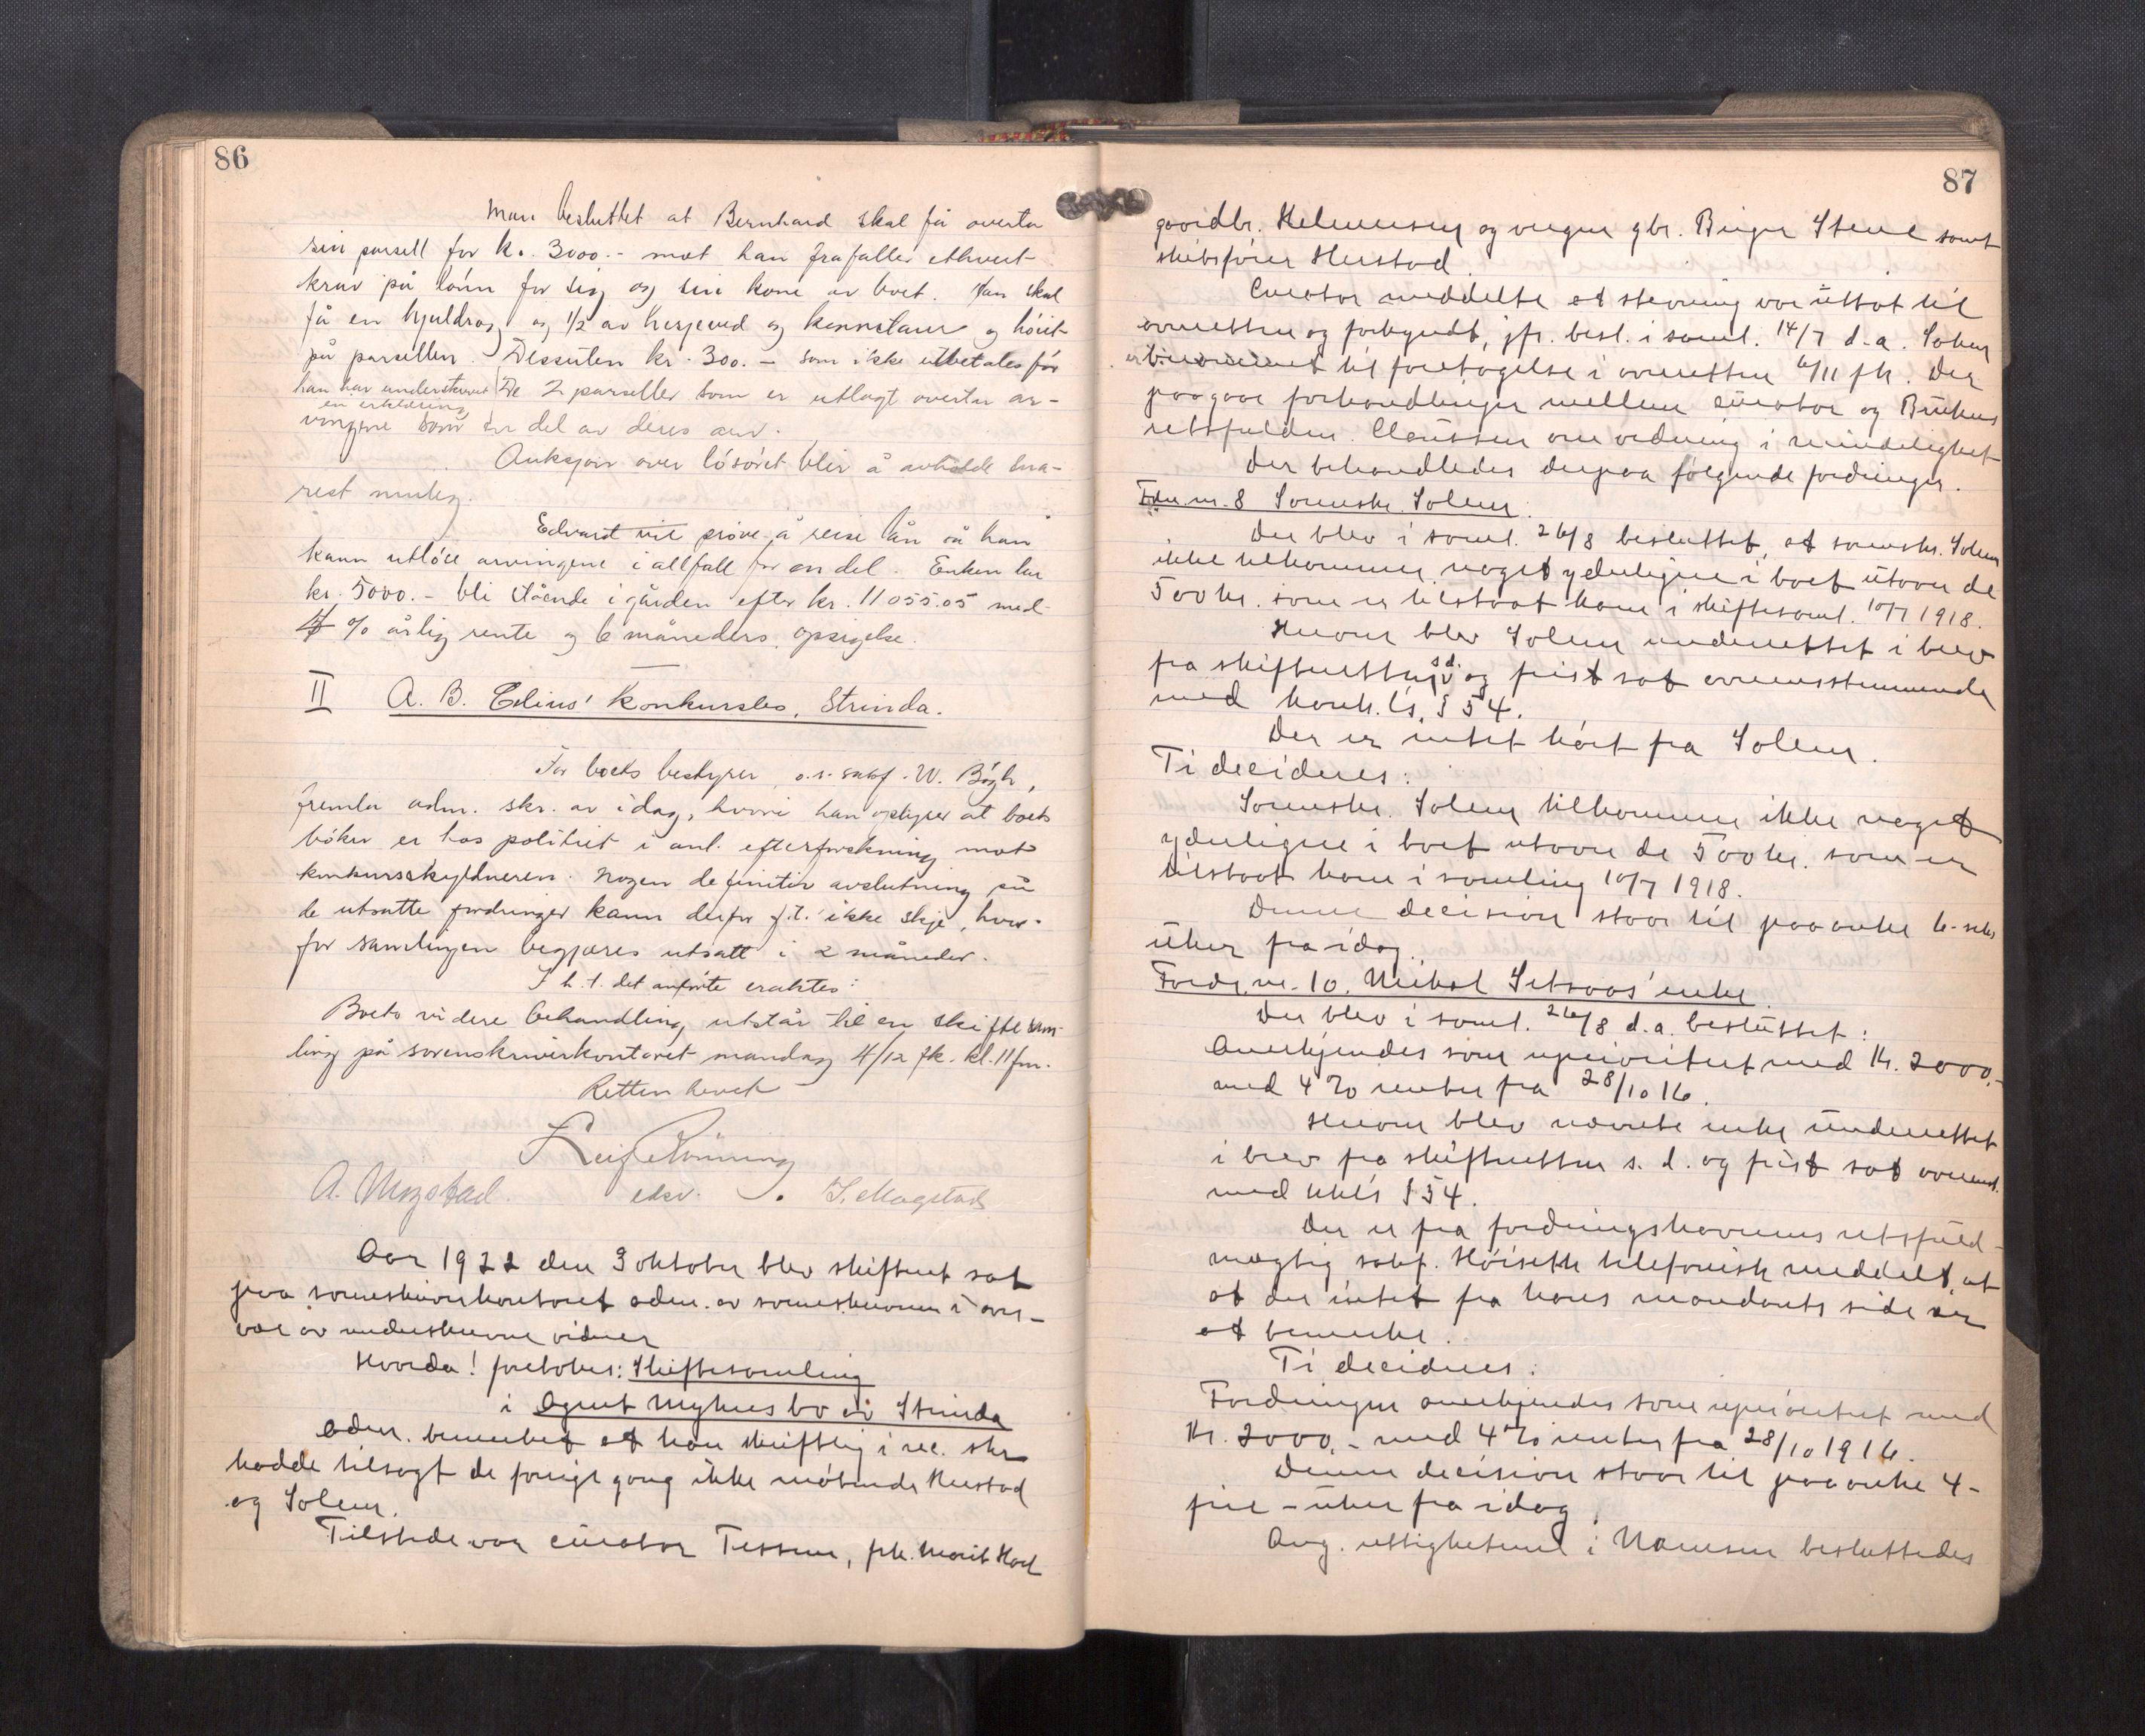 86
Man besluttet at Bernhard skal få overta
sin parsell for kr. 3000.- mot han frafaller ethvert
krav på lönn for sig og sin kone av boet. Han skal
få en hjuldrog og 1/2 av hesjeved og kennstaur og höiet
på parsellen. Dessuten kr. 300.- som ikke utbetales för
han har underskrevet en erklæring. De 2 parseller som er utlagt overtar ar-
vingene som en del av deres arv.
Auksjon over lösöret blir å avholde sna-
rest mulig.
Edvard vil pröve å reise lån så han
kann utlöse arvingene i allfall for en del. Enken lar
kr. 5000.- bli stående i gården efter kr. 11055.05 med
4 % årlig rente og 6 måneders opsigelse.
II A. B. Edins' konkursbo, Strinda.
For boets bestyrer, o.r.sakf. W. Bögh,
fremla adm. skr. av idag, hvori han oplyser at boets
böker er hos politiet i anl. efterforskning mot
konkursskyldneren. Nogen definitiv avslutning på
de utsatte fordringer kann derfor f.t. ikke skje, hvor-
for samlingen begjæres utsatt i 2 måneder.
I h. t. det anförte eraktes:
Boets videre behandling utstår til en skiftesam-
ling på sorenskriverkontoret mandag 4/12 fk. kl. 11 fm.
Retten hevet
Leif Rönning
A. Mogstad. edsv. S. Mogstad
Aar 1922 den 3 oktober blev skifteret sat
paa sorenskriverkontoret adm. av sorenskriveren i over-
vær av underskrevne vidner
Hvorda! foretokes: Skiftesamling
i Agent Myhres bo av Strinda
Adm. bemerket at han skriftlig i rec. skr
hadde tilsagt de forrige gang ikke mötende Herstad
og Solem.
Tilstede var curator Tessem, frk. Marit Hoel
87
gaardbr. Helmersen og verger gbr. Birger Stene samt
skibsförer Herstad.
Curator meddelte at stevning var uttat til
overretten og forkyndt, jfr. besl. i saml. 14/7 d.a. Saken
er berammet til foretagelse i overretten 6/11 fk. Der
paagaar forhandlinger mellem curator og Bruhns
retsfuldm. Claussen om ordning i mindelighet
Der behandledes derpaa følgende fordringer.
Fdr. nr. 8 Sorenskr. Solem.
Der blev i saml. 26/8 besluttet, at sorenskr. Solem
ikke tilkommer noget yderligere i boet utover de
500 kr. som er tilstaat ham i skiftesaml. 10/7 1918.
Herom blev Solem underrettet i brev
fra skifteretten s.d. og frist sat overensstemmende
med konk.l's § 54.
Der er intet hört fra Solem.
Ti decideres:
Sorenskr. Solem tilkommer ikke noget
yderligere i boet utover de 500 kr. som er
tilstaat ham i samling 10/7 1918.
Denne decision staar til paaanke 6-seks
uker fra idag.
Fordr. nr. 10. Mikal Setsaas' enke.
Der blev i saml. 26/8 d.a. besluttet:
Anerkjendes som uprioritert med Kr. 2000.-
med 4 % renter fra 28/10 16.
Herom blev nævnte enke underrettet
i brev fra skifteretten s. d. og frist sat overenst.
med kkl's § 54.
Der er fra fordringshaverens retsfuld-
mægtig sakf. Höiseth telefonisk meddelt, at
at der intet fra hans mandants side er
at bemerke.
Ti decideres:
Fordringen anerkjendes som uprioritert med
Kr. 2000.- med 4 % renter fra 28/10 1916.
Denne decision staar til paaanke 4-
fire - uker fra idag
Ang. rettighetene i Namsen besluttedes